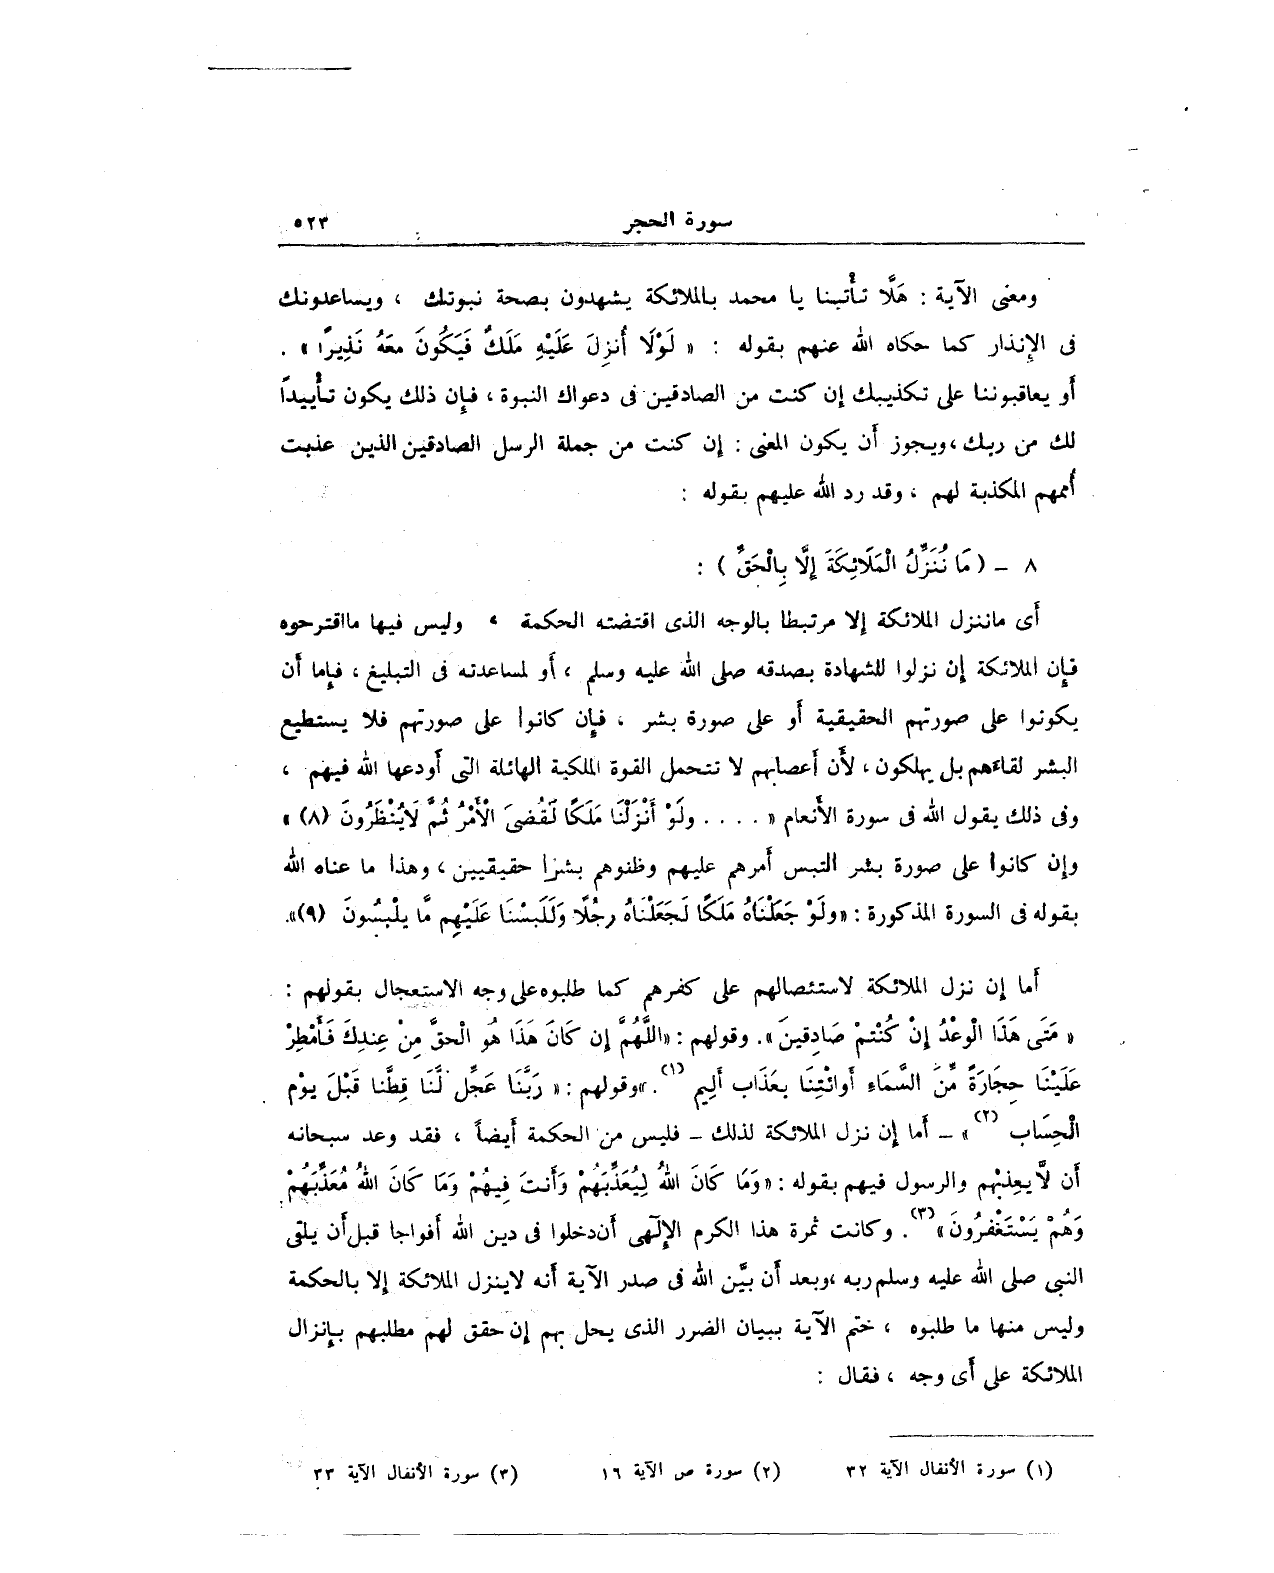 سورة الحجر ٥٢٣
ومعنى الآية : هَلَّا تأْتينا يا محمد بالملائكة يشهدون بصحة نبوتك ، ويساعدونك
فى الإِنذار كما حكاه الله عنهم بقوله : « لَوْلَا أُنزِلَ عَلَيْهِ مَلَكٌ فَيَكُونَ معَهُ نَذِيرًا » .
أَو يعاقبوننا على تكذيبك إن كنت من الصادقين فى دعواك النبوة ، فإِن ذلك يكون تأْييداً
لك من ربك ،ويجوز أَن يكون المعنى : إن كنت من جملة الرسل الصادقين الذين عذبت
أُممهم المكذبة لهم ، وقد رد الله عليهم بقوله :
٨ – ( مَا نُنَزِّلُ الْمَلَائِكَةَ إِلَّا بِالْحَقِّ ) :
أَى ماننزل الملائكة إلا مرتبطا بالوجه الذى اقتضته الحكمة ، وليس فيها مااقترحوه
فإِن الملائكة إن نزلوا للشهادة بصدقه صلى الله عليه وسلم ، أَو لمساعدته فى التبليغ ، فإِما أَن
يكونوا على صورتهم الحقيقية أَو على صورة بشر ، فإِن كانوا على صورتهم فلا يستطيع
البشر لقاءهم بل يهلكون ، لأَن أَعصابهم لا تتحمل القوة الملكية الهائلة التى أَودعها الله فيهم ،
وفى ذلك يقول الله فى سورة الأَنعام « .... ولَوْ أَنْزَلْنَا مَلَكًا لَقُضىَ الْأَمْرُ ثُمَّ لَايُنْظَرُونَ (٨) »
وإن كانوا على صورة بشر التبس أَمرهم عليهم وظنوهم بشرًا حقيقيين ، وهذا ما عناه الله
بقوله فى السورة المذكورة : «ولَوْ جَعَلْنَاهُ مَلَكًا لَجَعَلْنَاهُ رجُلًا وَلَلَبسْنَا عَلَيْهِم مَّا يلْبسُونَ (٩)».
أَما إن نزل الملائكة لاستئصالهم على كفرهم كما طلبوه على وجه الاستعجال بقولهم :
« مَتَى هَذَا الْوعْدُ إِنْ كُنْتمْ صَادِقينَ ». وقولهم : «اللَّهُمَّ إِن كَانَ هَذَا هُو الْحقَّ مِنْ عِندِكَ فَأَمْطِرْ
عَلَيْنَا حِجَارَةً مِّنَ السَّمَاءِ أَوائْتِنَا بعَذَاب أَلِيم (١) .»وقولهم : « رَبَّنَا عَجِّل لَّنَا قِطَّنا قَبْلَ يوْم
الْحِسَاب (٢) » – أَما إن نزل الملائكة لذلك – فليس من الحكمة أَيضاً ، فقد وعد سبحانه
أَن لاَّيعذبهم والرسول فيهم بقوله : «وَمَا كَانَ اللهُ لِيُعَذِّبَهُمْ وَأَنتَ فِيهُمْ وَمَا كَانَ اللهُ مُعَذِّبَهُمْ
وَهُمْ يَسْتَغْفرُونَ» (٣) . وكانت ثمرة هذا الكرم الإِلَهى أَن دخلوا فى دين الله أَفواجا قبل أَن يلتى
النبى صلى الله عليه وسلم ربه ،وبعد أَن بيَّن الله فى صدر الآية أَنه لاينزل الملائكة إلا بالحكمة
وليس منها ما طلبوه ، ختم الآية ببيان الضرر الذى يحل بهم إن حقق لهم مطلبهم بإِنزال
الملائكة على أَى وجه ، فقال :
(١) سورة الأنفال الآية ٣٢ (٢) سورة ص الآية ١٦ (٣) سورة الأنفال الآية ٣٣